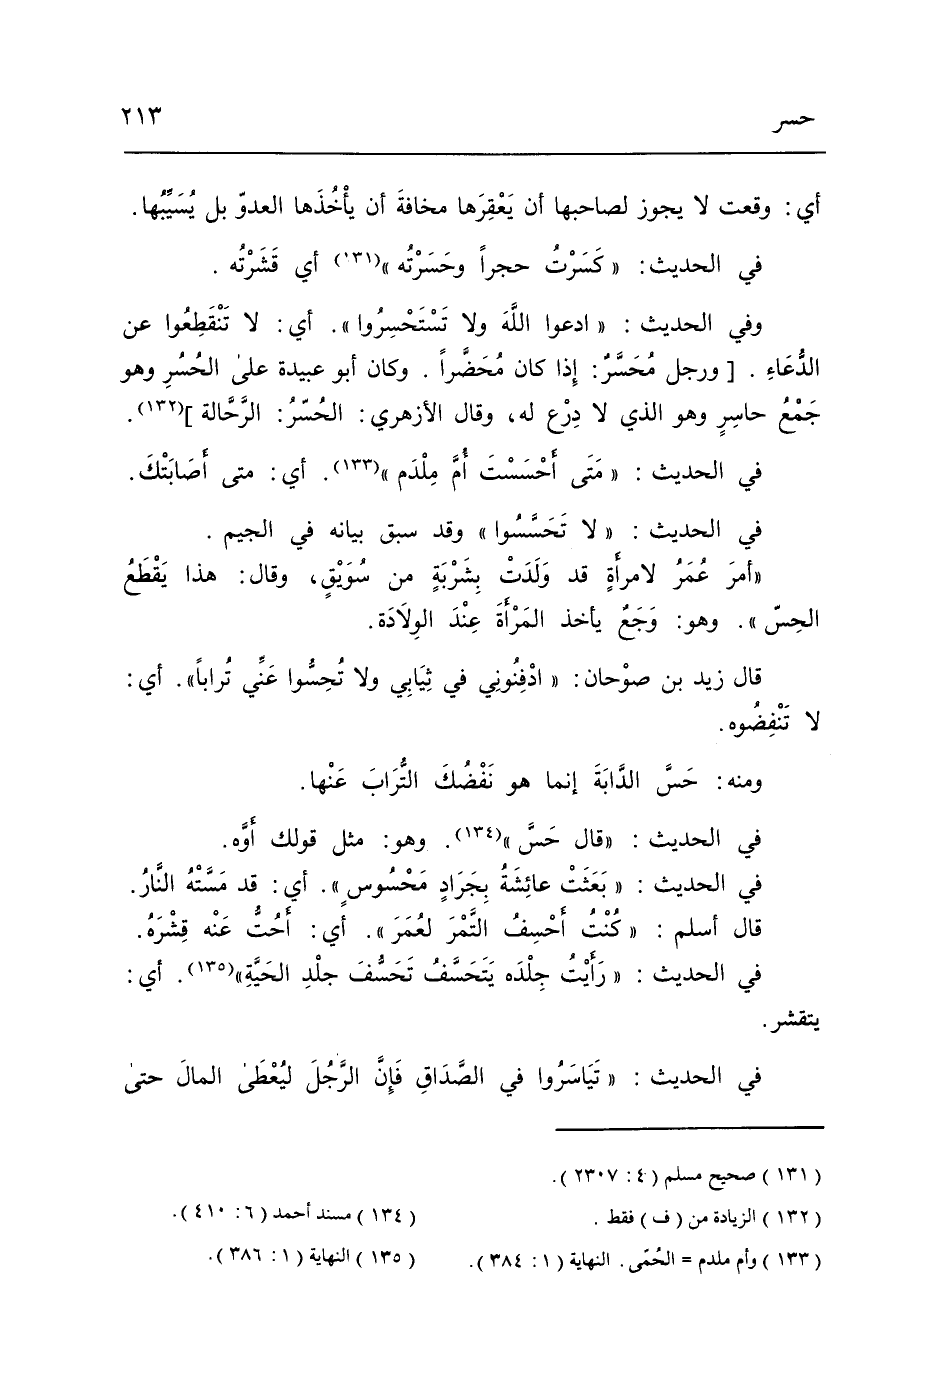 حسر ٢١٣
أي: وقعت لا يجوز لصاحبها أن يَعْقِرَها مخافةَ أن يأْخُذَها العدوّ بل يُسَيِّبُها.
في الحديث: « كَسَرْتُ حجراً وحَسَرْتُه »(١٣١) أي قَشَرْتُه .
وفي الحديث : « ادعوا اللَّهَ ولا تَسْتَحْسِرُوا ». أي: لا تَنْقَطِعُوا عن
الدُّعَاءِ . [ ورجل مُحَسَّرٌ: إِذا كان مُحَضَّراً . وكان أبو عبيدة على الحُسُرِ وهو
جَمْعُ حاسِرٍ وهو الذي لا دِرْع له، وقال الأزهري: الحُسّرُ: الرَّحَّالة ](١٣٢).
في الحديث : « مَتَى أَحْسَسْتَ أُمَّ مِلْدَم »(١٣٣). أي: متى أَصَابَتْكَ.
في الحديث : « لا تَحَسَّسُوا » وقد سبق بيانه في الجيم .
«أمرَ عُمَرُ لامرأَةٍ قد وَلَدَتْ بِشَرْبَةٍ من سُوَيْقٍ، وقال: هذا يَقْطَعُ
الحِسّ ». وهو: وَجَعٌ يأخذ المَرْأَةَ عِنْدَ الوِلَادَة.
قال زيد بن صوْحان: « ادْفِنُونِي في ثِيَابِي ولا تُحِسُّوا عَنِّي تُراباً». أي:
لا تَنْفِضُوه.
ومنه: حَسَّ الدَّابَةَ إنما هو نَفْضُكَ التُّرَابَ عَنْها.
في الحديث : «قال حَسَّ »(١٣٤). وهو: مثل قولك أَوَّه.
في الحديث : « بَعَثَتْ عائِشَةُ بِجَرَادٍ مَحْسُوسٍ ». أي: قد مَسَّتْهُ النَّارُ.
قال أسلم : « كُنْتُ أَحْسِفُ التَّمْرَ لعُمَرَ ». أي: أَحُتُّ عَنْه قِشْرَهُ.
في الحديث : « رَأَيْتُ جِلْدَه يَتَحَسَّفُ تَحَسُّفَ جلْدِ الحَيَّةِ»(١٣٥). أي:
يتقشر.
في الحديث : « تَيَاسَرُوا في الصَّدَاقِ فَإِنَّ الرَّجُلَ لَيُعْطَى المالَ حتى
( ١٣١ ) صحيح مسلم ( ٤ : ٢٣٠٧ ).
( ١٣٢ ) الزيادة من ( ف ) فقط .
( ١٣٣ ) وأم ملدم = الحُمّى. النهاية ( ١ : ٣٨٤ ).
( ١٣٤ ) مسند أحمد ( ٦ : ٤١٠ ).
( ١٣٥ ) النهاية ( ١ : ٣٨٦ ).